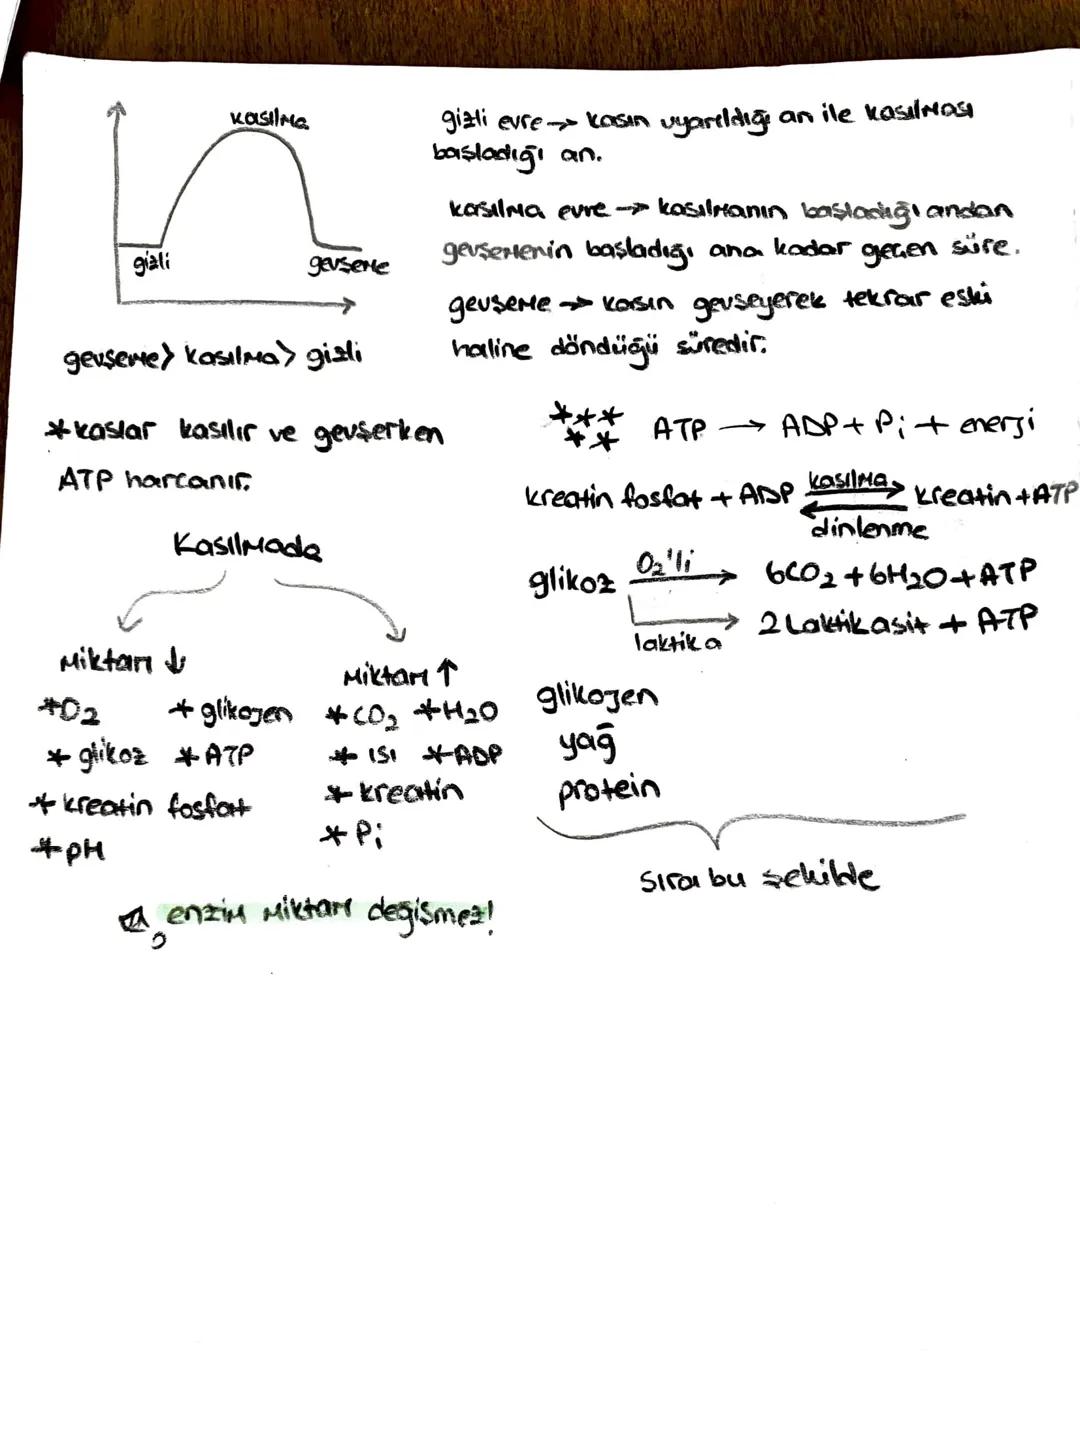 kasılma
gizli
gevşeme
gevşeme > kasılma > gizli
gizli evre → kasın uyarıldığı an ile kasılması
başladığı an.
kasılma evre → kasılmanın başladığı andan
gevşemenin başladığı ana kadar geçen süre.
gevşeme → kasın gevşeyerek tekrar eski
haline döndüğü süredir.
* kaslar kasılır ve gevşerken
ATP harcanır.
Kasılmada
Miktarı ↓
*O₂ * glikojen
* glikoz * ATP
* kreatin fosfat
* pH
Miktarı ↑
* CO₂ * H₂O
* ısı * ADP
* kreatin
* Pi
enzim miktarı değişmez!
***
** ATP → ADP + Pi + enerji
kreatin fosfat + ADP kasılma kreatin + ATP
dinlenme
glikoz O₂'li → 6CO₂ + 6H₂O + ATP
laktik a → 2 Laktik asit + ATP
glikojen
yağ
protein
sıra bu şekilde